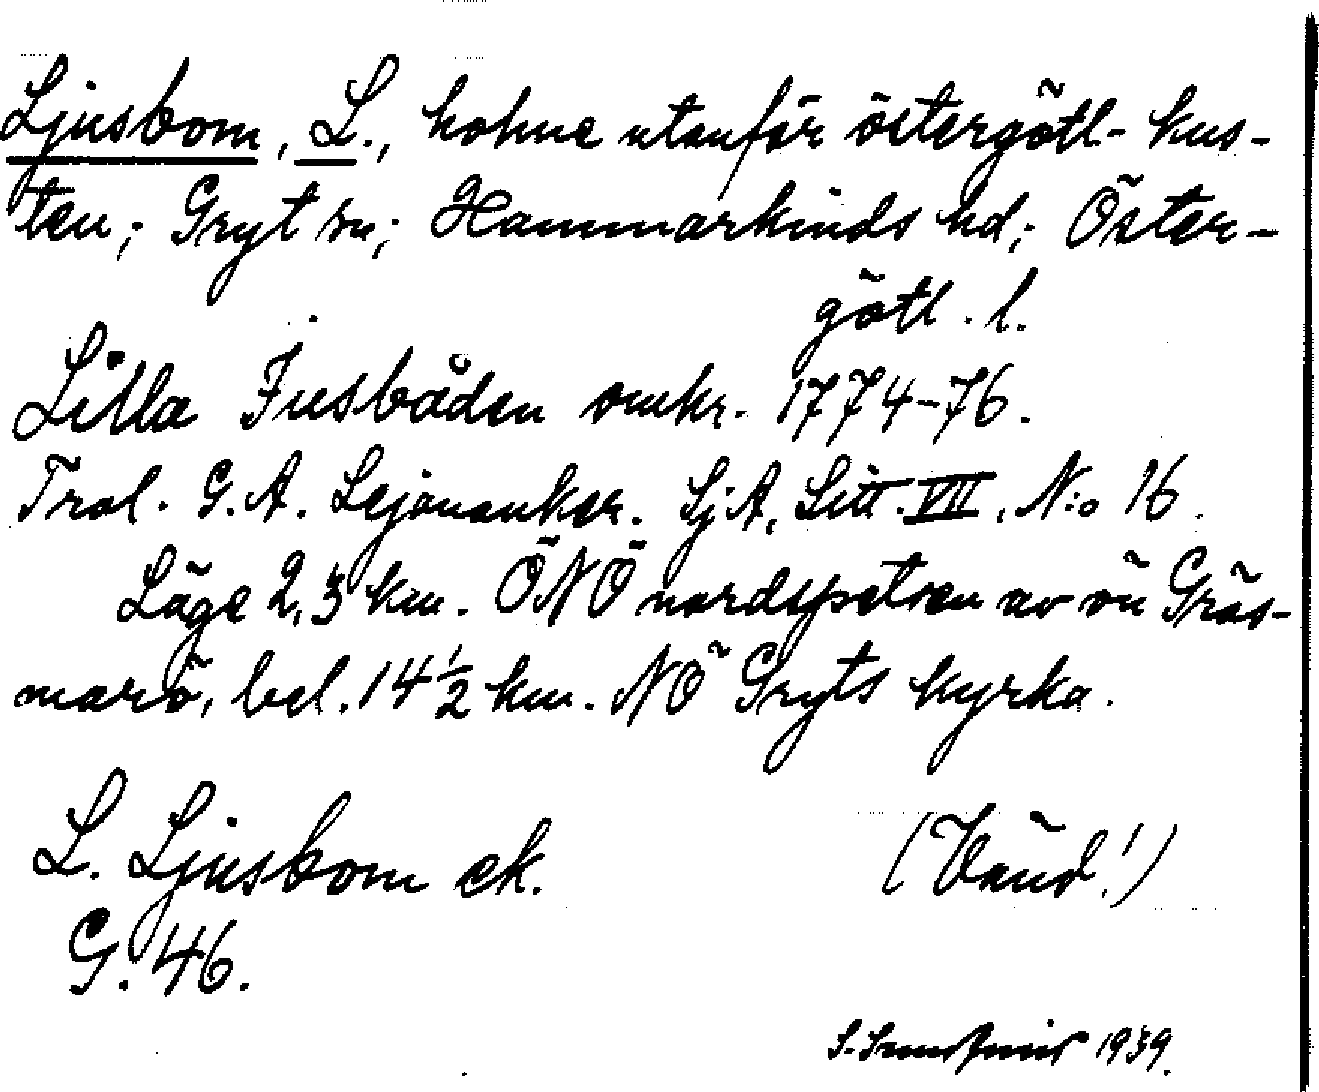 Ljusbom, L., holme utanför östergötl. kus-
ten; Gryt sn; Hammarkinds hd; Öster-
götl. l.
Lilla Jusbåden omkr. 1774-76.
Trol. G. A. Lejonanker. SjA, Litt. VII, N:o 16.
Läge 2,3 km. ÖNÖ nordspetsen av ön Gräs-
marö, bel. 14 1/2 km. NÖ Gryts kyrka.
L. Ljusbom ek.
(Vänd!)
G. 46.
S. 1939.